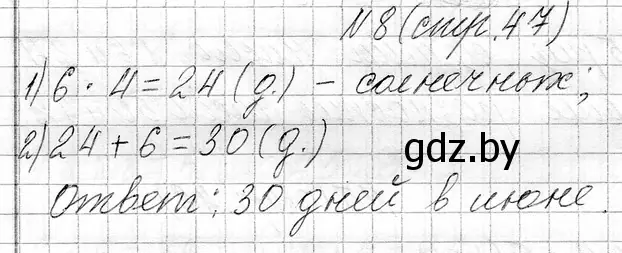 N8 (стр. 47)
1) 6 · 4 = 24 (д.) – солнечных;
2) 24 + 6 = 30 (д.)
gdz.by
Ответ: 30 дней в июне.